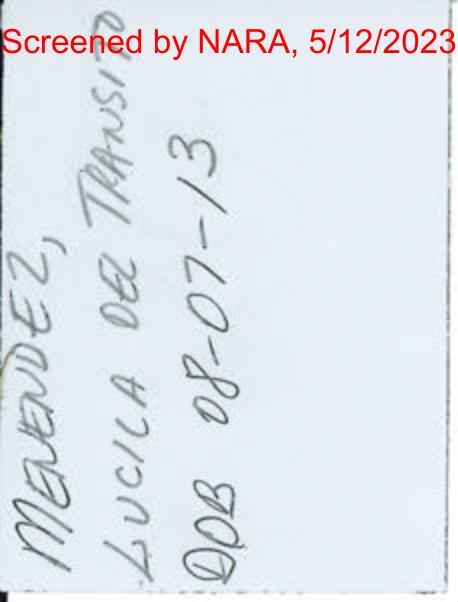 Screened by NARA, 5/12/2023
MENENDEZ,
LUCILA DEL TRANSITO
DOB 08-07-13